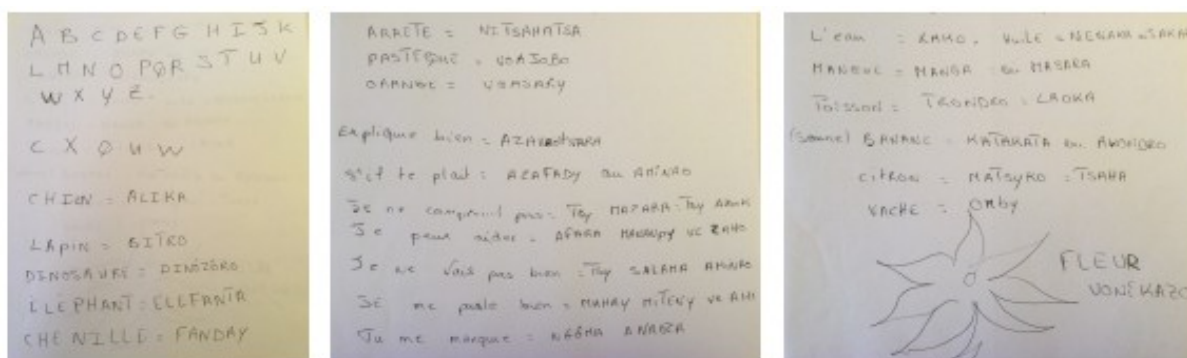 A B C D E F G H I J K
L M N O P Q R S T U V
W X Y Z
C X Q U W
CHIEN = ALIKA
LAPIN = BITRO
DINOSAURE = DINÔZÔRO
ELEPHANT = ELEFANTA
CHENILLE = FANDAY
ARRETE = NITSAHATSA
PASTEQUE = VOAJOBO
ORANGE = VOASARY
Explique bien =
s'il te plait = AZAFADY ou AMINAO
Je ne comprend pas = Tsy
Je peux aider = AFAKA VE ZAHO
Je ne vais pas bien = Tsy SALAMA AMINAO
Je me parle bien = MAHAY MITENY VE AMI
Tu me manque =
L'eau = RANO
MANGUE = MANGA ou MASAKA
Poisson = TRONDRO = LAOKA
BANANE = KATAKATA ou AKONDRO
CITRON = MATSYKO = TSAHA
VACHE = OMBY
FLEUR
VONEKAZO